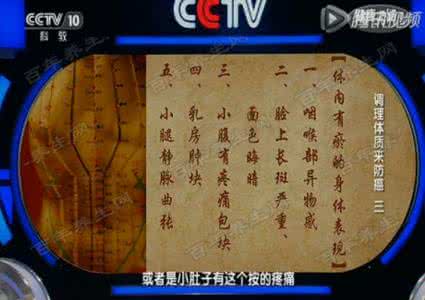 CCTV 10
科教
CCTV
腾讯视频
【体内有瘀的身体表现】
一、咽喉部异物感
二、脸上长斑严重、
面色晦暗
三、小腹有疼痛包块
四、乳房肿块
五、小腿静脉曲张
调理体质来防癌 三
百年养生网
或者是小肚子有这个按的疼痛